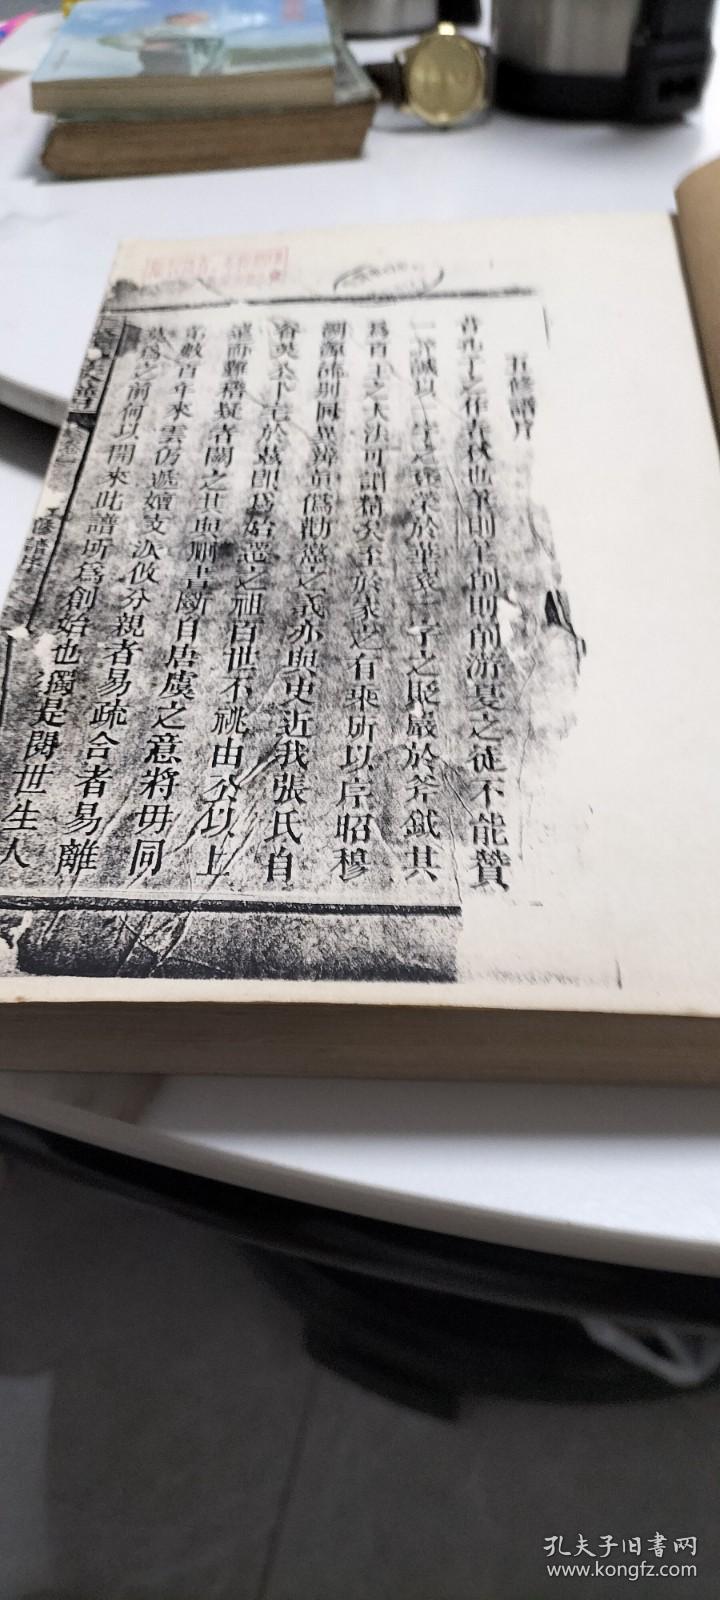 五修譜序
昔孔子之作春秋也筆則筆削則削游夏之徒不能贊
一辭誠以一字之褒榮於華袞一字之貶嚴於斧鉞其
為百王之大法可謂精矣至於家之有乘所以序昭穆
溯源流別同異辨真偽勸懲之義亦與史近我張氏自
容英公卜宅於茲即為始遷之祖百世不祧由公以上
遠而難稽疑者闕之其與刪書斷自唐虞之意將毋同
第數百年來雲仍遞嬗支派攸分親者易疏合者易離
莫為之前何以開來此譜所為創始也獨是閱世生人
五修譜序
孔夫子旧書网
www.kongfz.com